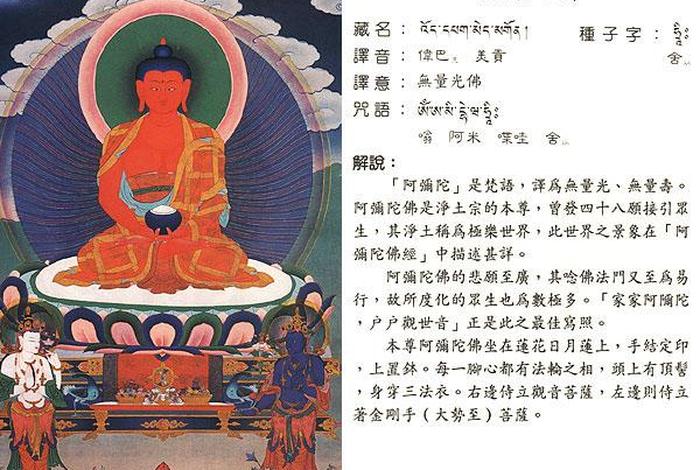 藏名：འོད་དཔག་མེད་མགོན། 種子字：ཧྲཱིཿ
譯音：偉巴 美貢 舍
譯意：無量光佛
咒語：ༀ་ཨ་མི་དྷེ་ཝ་ཧྲཱིཿ
嗡 阿米 喋哇 舍
解說：
「阿彌陀」是梵語，譯爲無量光、無量壽。
阿彌陀佛是淨土宗的本尊，曾發四十八願接引眾
生，其淨土稱爲極樂世界，此世界之景象在「阿
彌陀佛經」中描述甚詳。
阿彌陀佛的悲願至廣，其唸佛法門又至爲易
行，故所度化的眾生也爲數極多。「家家阿彌陀
，戶戶觀世音」正是此之最佳寫照。
本尊阿彌陀佛坐在蓮花日月蓮上，手結定印
，上置鉢。每一腳心都有法輪之相，頭上有頂髻
，身穿三法衣。右邊侍立觀音菩薩，左邊則侍立
著金剛手（大勢至）菩薩。